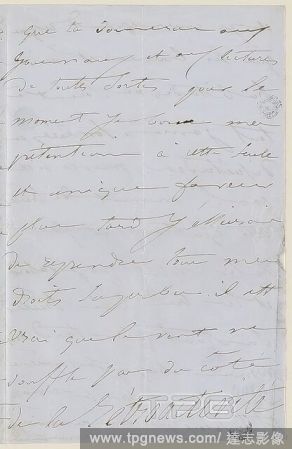 que tu donneras aux
journaux et aux lectures
de toutes sortes pour le
moment je borne mes
prétentions à cette seule
et unique faveur
plus tard j'essaierai
de reprendre tous mes
droits il est
vrai que le vent ne
souffle pas du côté
de la
www.tpgnews.com / 達志影像